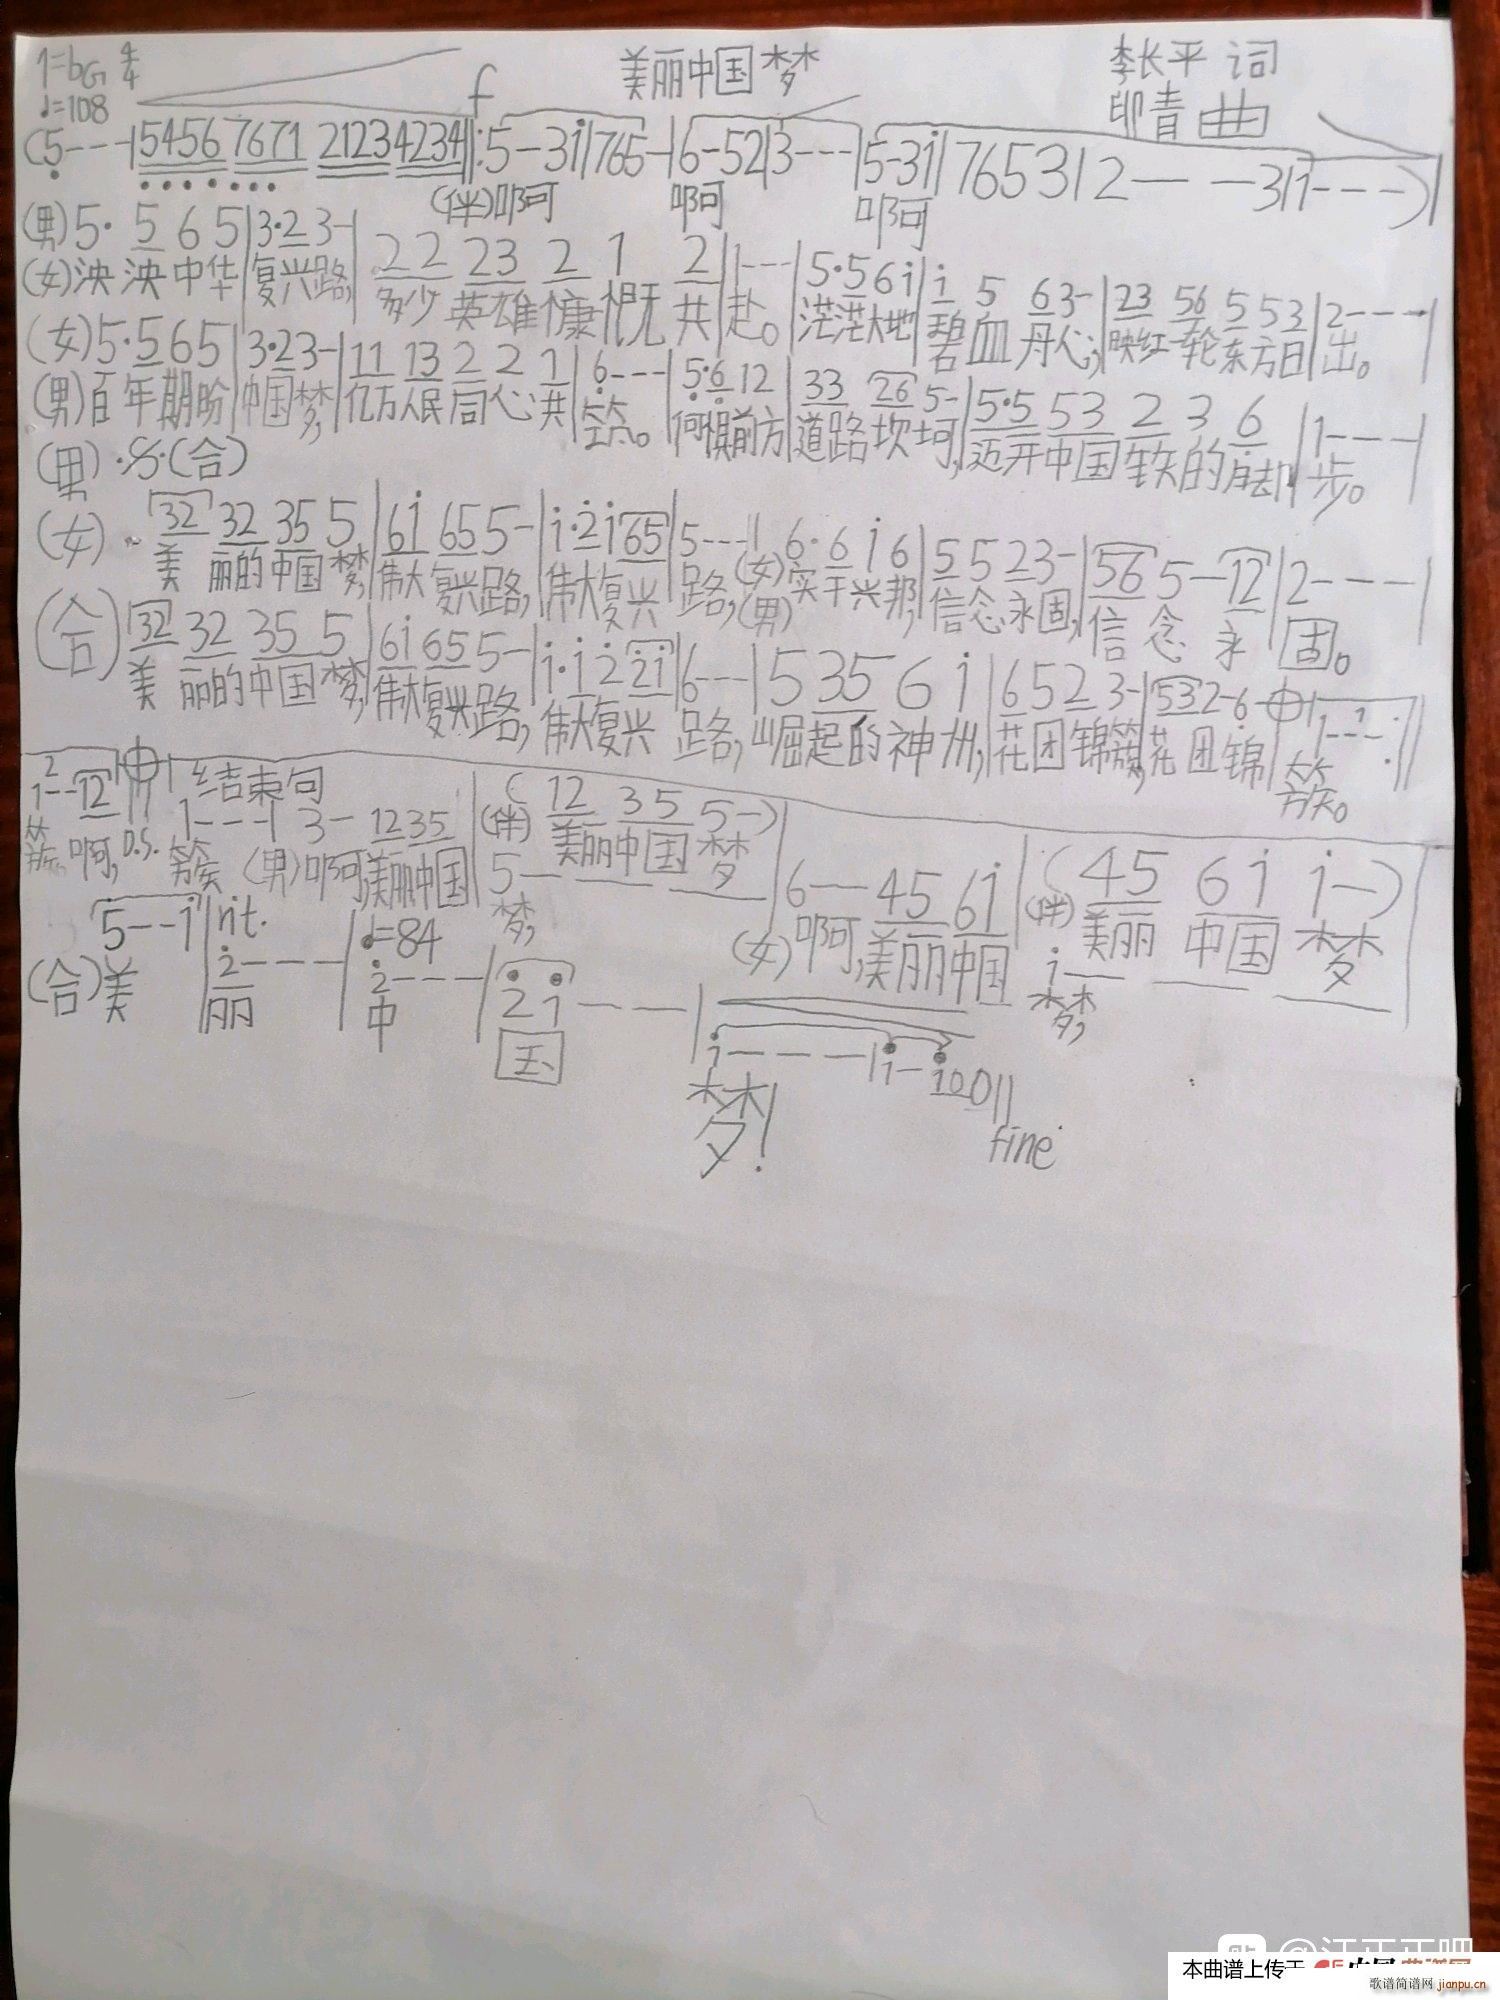 1=bG 4/4 美丽中国梦 李长平 词
♩=108 f 印青 曲
(5---|5456 7671 2123 4234‖:5-3i|765-|6-52|3---|5-3i|76531|2---31|1---)|
(伴)啊 啊 啊
(男)5· 5 6 5|3·2 3-|22 23 2 1 2|1---|5·5 6 i|i 5 6 3-|23 56 5 53|2---|
(女)泱 泱 中华 复兴路, 多少 英雄 慷慨 共 赴。 茫茫大地 碧血 丹心, 映红一轮东方日 出。
(女)5·5 6 5|3·2 3-|11 13 2 2 1|6---|5·6 12|33 26 5-|5·5 53 2 3 6|1---|
(男)百年期盼 中国梦, 亿万人民同心共 筑。 何惧前方 道路坎坷, 迈开中国铁的脚 步。
(男)·S·(合)
(女) 32 32 35 5|6i 65 5-|i·2 i 65|5---|6·6 i 6|5 5 2 3-|56 5-12|2---|
美 丽的中国 梦, 伟大复兴路, 伟大复兴 路, (女)实干兴邦, 信念永固, 信 念 永 固。
(男)
(合) 32 32 35 5|6i 65 5-|i·i 2 2i|6---|5 35 6 i|6 5 2 3-|53 2-6|1---:‖
美 丽的中国 梦, 伟大复兴路, 伟大复兴 路, 崛起的神州, 花团锦簇, 花 团锦 簇。
2 结束句
1--12‖1---|3- 1235|(12 35 5-)
簇 啊, D.S. 簇 (男)啊,美丽中国 (伴)美丽中国 梦
5---
梦,
6-- 45 6i|(45 6i i-)
(女)啊,美丽中国 (伴)美丽 中国 梦
i---
梦,
5--i|rit. 2---|♩=84 2---|2i--|i---|i-i00‖
(合)美 丽 中 国 梦!
fine
本曲谱上传于
歌谱简谱网 jianpu.cn